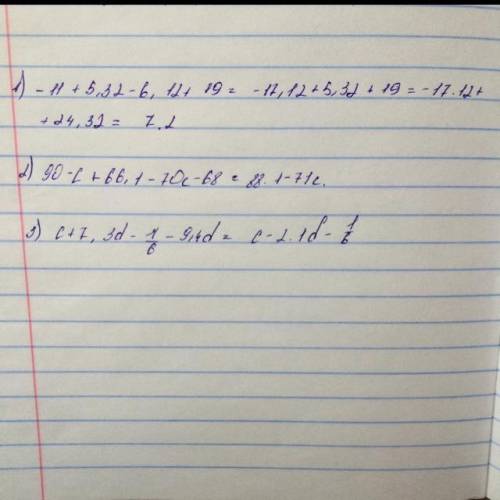 1) -11 + 5,32 - 6, 12 + 19 = -17,12 + 5,32 + 19 = -17.12 +
+ 24,32 = 7.2
2) 90 - c + 66,1 - 70c - 68 = 88.1 - 71c.
3) c + 7, 3d - 1/6 - 9,4d = c - 2.1d - 1/6